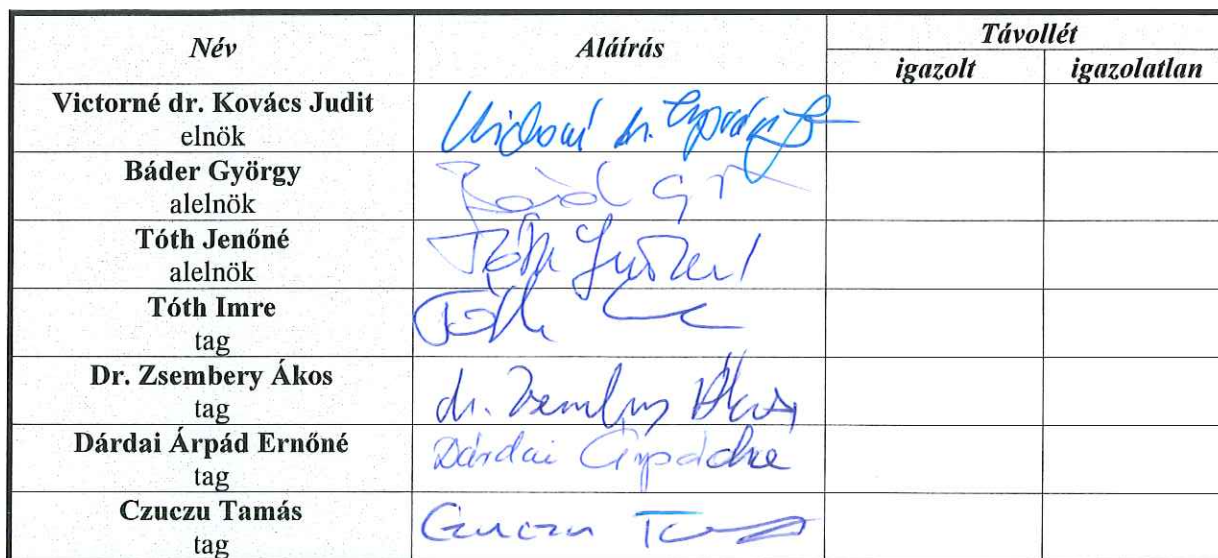 Név Aláírás Távollét
igazolt igazolatlan
Victorné dr. Kovács Judit
elnök
Báder György
alelnök
Tóth Jenőné
alelnök
Tóth Imre
tag
Tóth
Dr. Zsembery Ákos
tag
dr. Zsembery Ákos
Dárdai Árpád Ernőné
tag
Dárdai Árpádné
Czuczu Tamás
tag
Czuczu